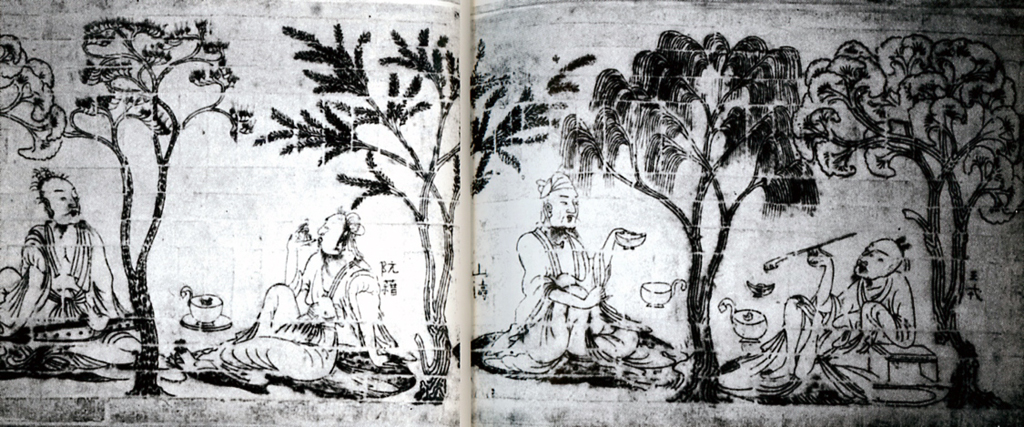 王戎
山濤
阮籍